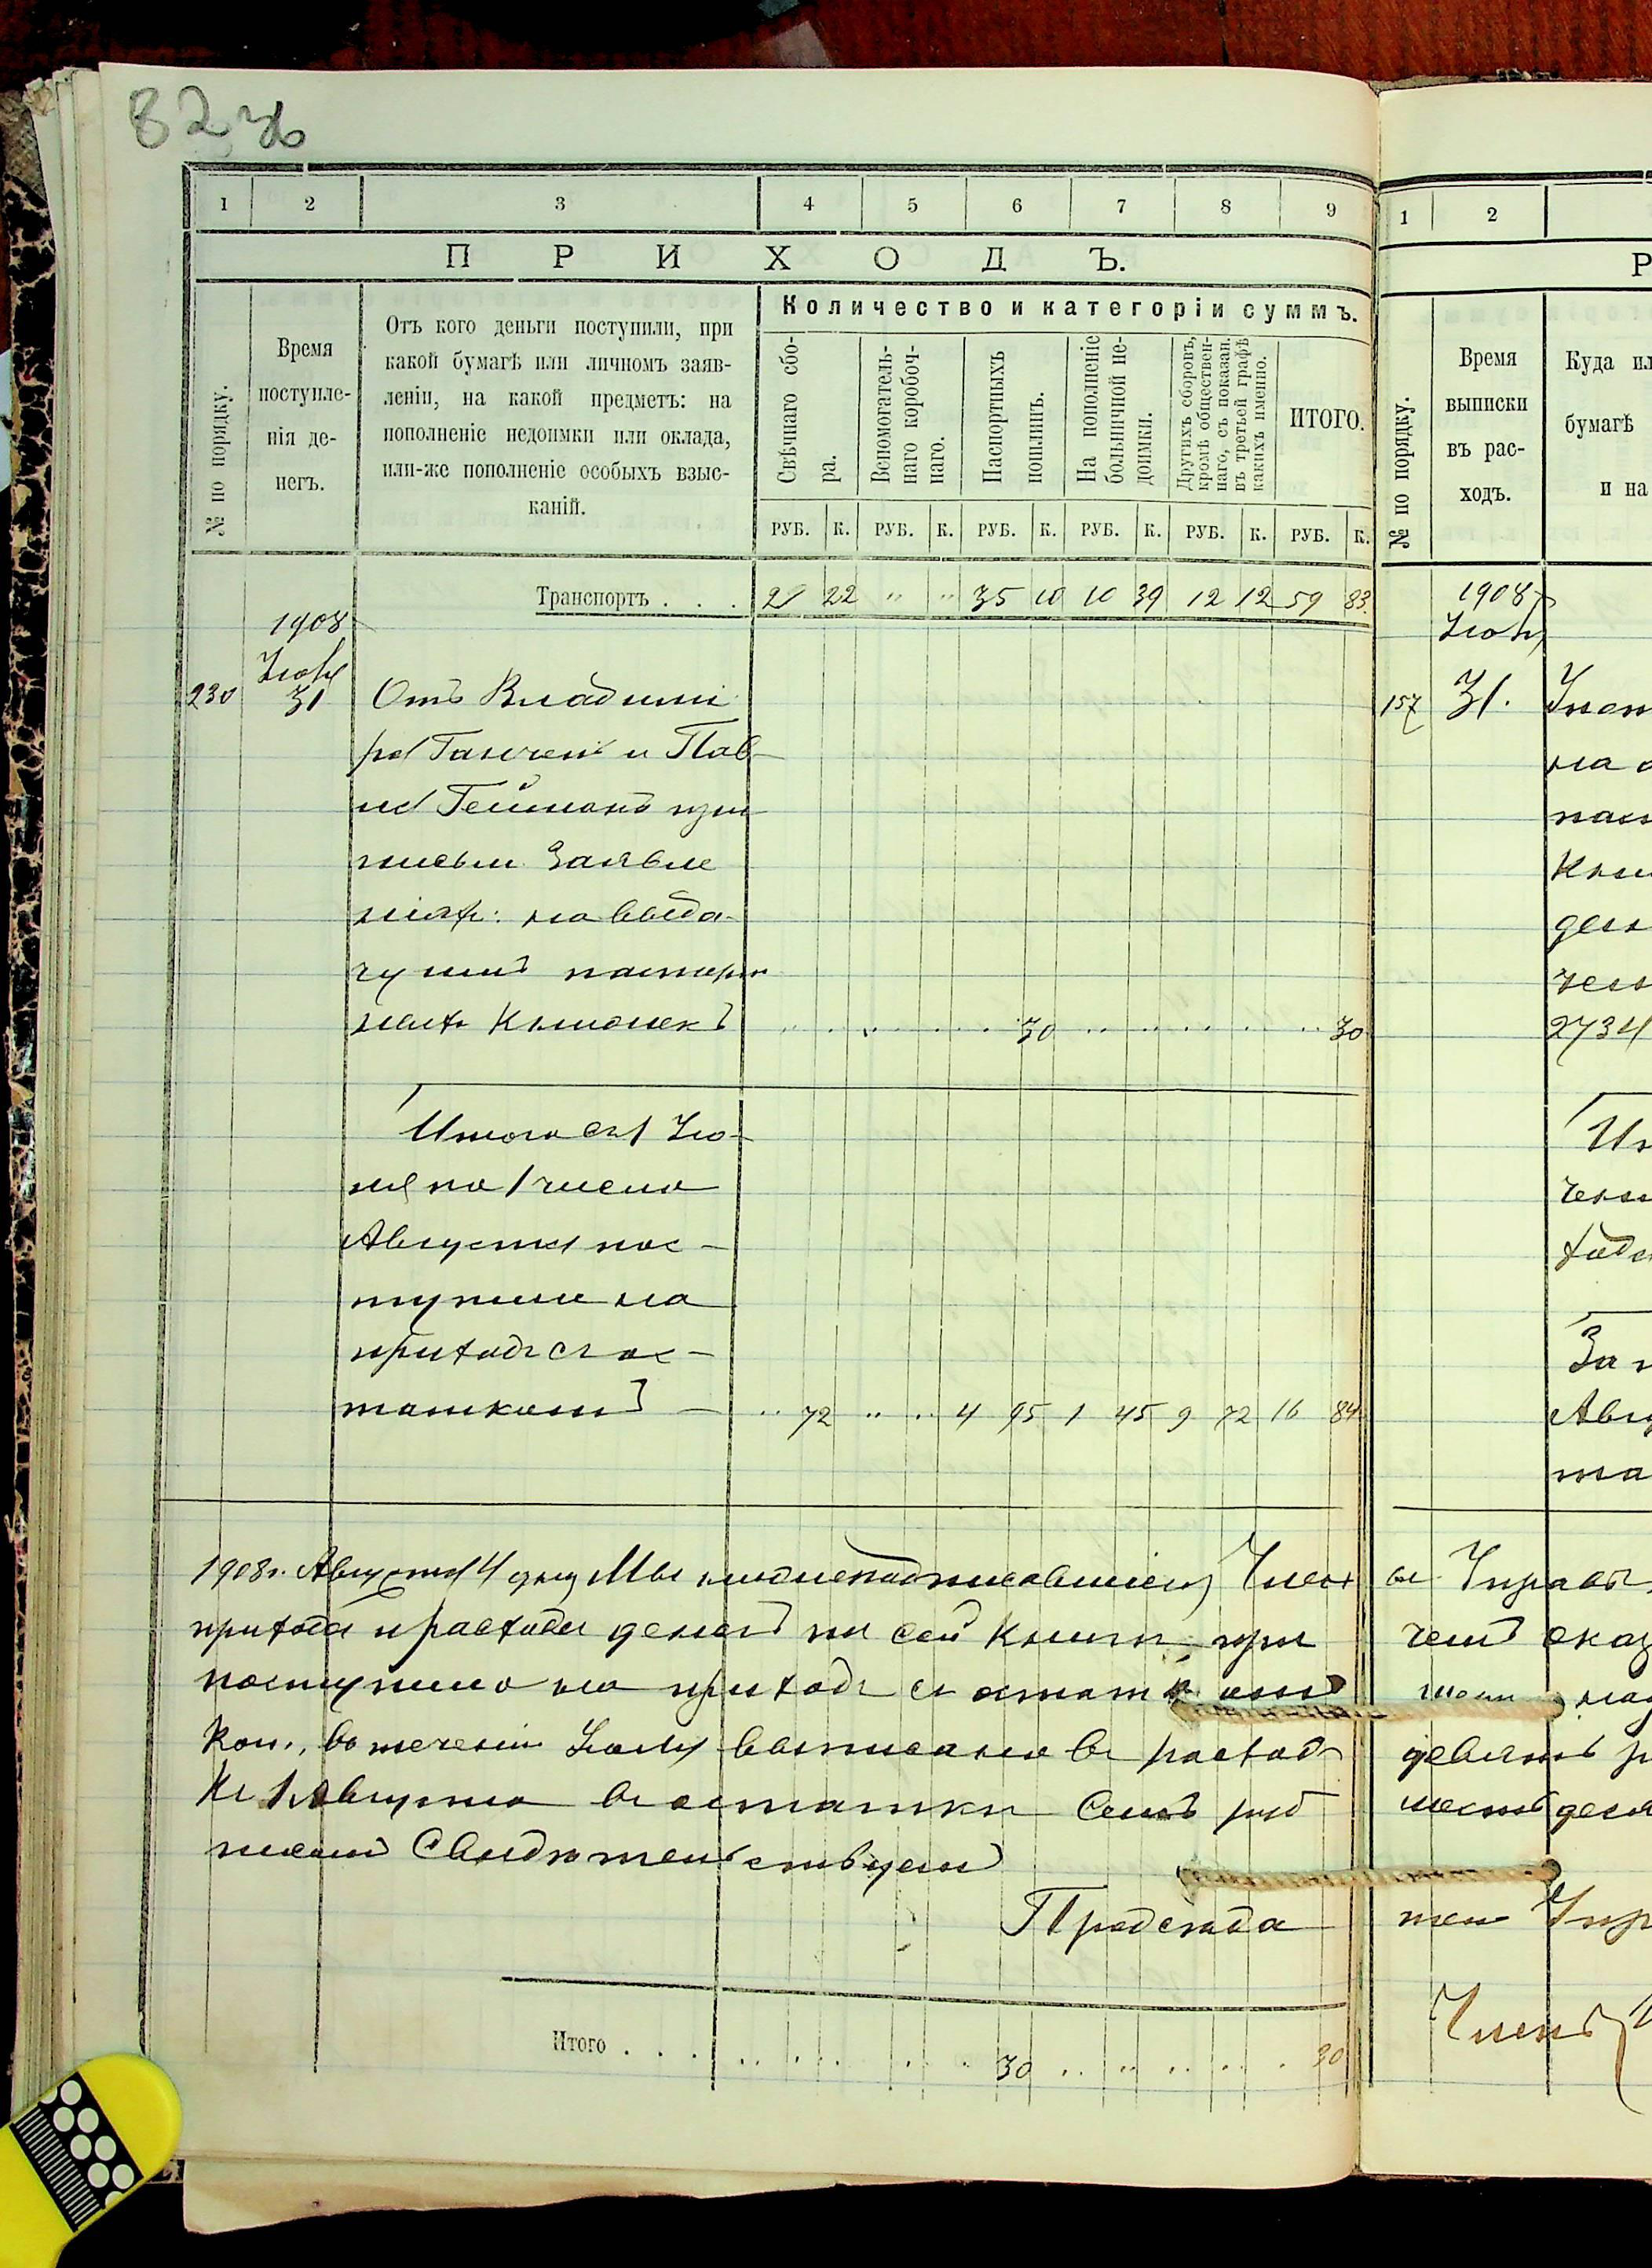 82
1 2 3 4 5 6 7 8 9
ПРИХОДЪ.
№ по порядку.
Время
поступле-
нія де-
негъ.
Отъ кого деньги поступили, при
какой бумагѣ или личномъ заяв-
леніи, на какой предметъ: на
пополненіе недоимки или оклада,
или-же пополненіе особыхъ взыс-
каній.
Количество и категоріи суммъ.
Свѣчнаго сбо-
ра.
Вспомогатель-
наго коробоч-
наго.
Паспортныхъ
пошлинъ.
На пополненіе
больничной не-
доимки.
Другихъ сборовъ,
кромѣ обществен-
наго, съ показан.
въ третьей графѣ
какихъ именно.
ИТОГО.
РУБ. К. РУБ. К. РУБ. К. РУБ. К. РУБ. К. РУБ. К.
Транспортъ . . . 2 22 " " 35 10 10 39 12 12 59 83.
1908
Іюля
230 31 Отъ Владими
ра и Пав-
ла Геймана при
письм. Заявле
ніяхъ: на выда
чу имъ паспорт
ныхъ Книжекъ 30 30
Итого съ 1 Ію-
ля по 1 число
Августа пос-
тупило на
приходъ съ ос-
таткомъ — .. 72 .. .. 4 95 1 45 9 72 16 84
1908г. Августа 4 дня Мы нижеподписавшіеся Члены Управы,
прихода и расхода денегъ по сей Книги, при чемъ оказ
поступило на приходъ съ остаткомъ
Коп., въ теченіи Іюля выписано въ расходъ девять р
Къ 1 Августа въ остатки Семь руб
чемъ Свидѣтельствуемъ
Предсѣда тель Упр
Членъ
Итого . . . 30 30
1 2
Р
№ по порядку.
Время
выписки
въ рас-
ходъ.
Куда ил
бумагѣ
и на
1908
Іюля
157 31.
на
пасп
Кни
ден
чен
2734
Ит
чені
ходъ
За
Авгу
та